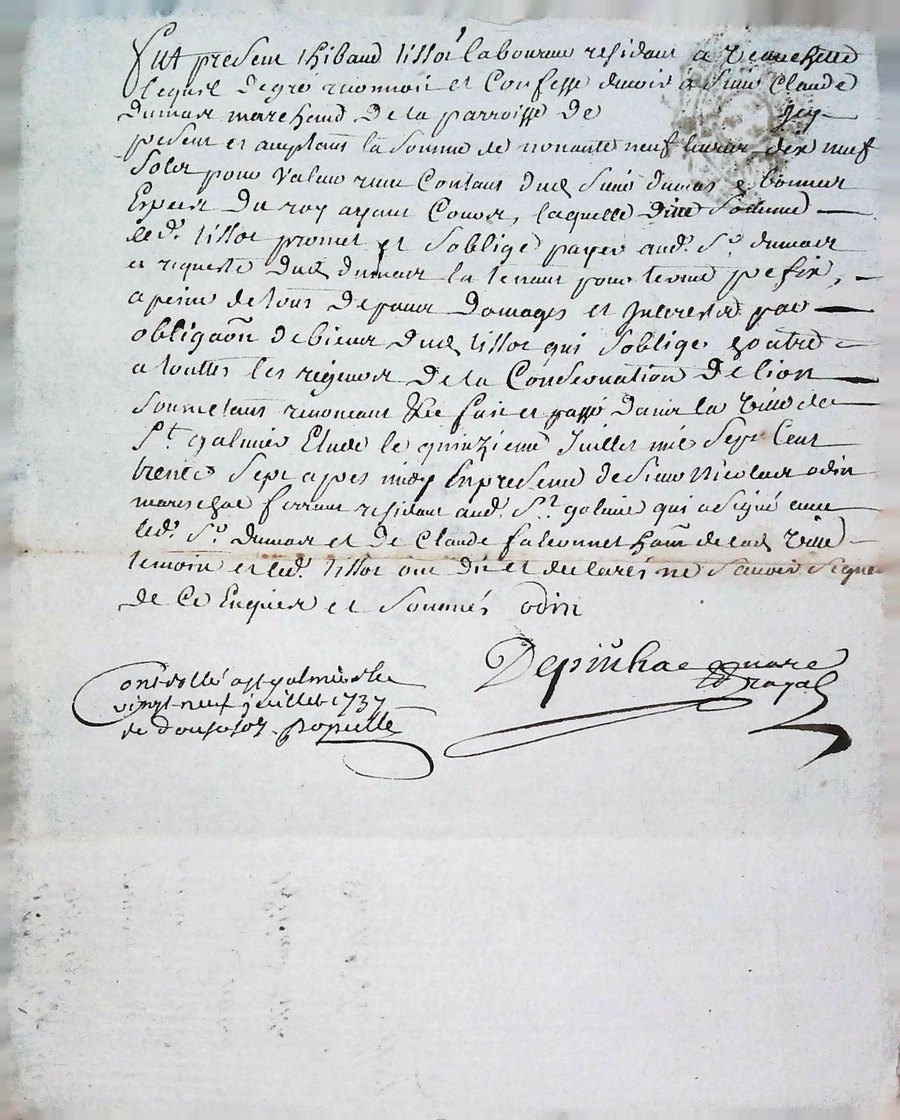 Fut present thibaud tissot laboureur residant a
lequel de gré reconnoit et Confesse devoir a Sieur Claude
dumas marchand de la parroisse de icy
pesent et aceptant la somme de nonante neuf livres dix neuf
Solz pour valeur reçue Contant dud Sieur dumas en bonnes
Especes Du roy ayant Cours, laquelle ditte Somme
led. tissot promet et soblige payer aud. Sr. dumas
et requeste dud dumas la tenant pour terme prefix,
a peine de tous Depans Domages et Interestz par
obligaõn de biens dud tissot qui soblige outre
a touttes les rigeurs De la Conservation De lion
Soumetant renoncant fait et passé Dans la ville de
St. galmier Etude le quinzieme Juillet mil Sept Cent
trente Sept apres midy En presence de Sieur Nicolas odin
mareschal ferrant residant aud. St. galmier qui a signé avec
led. Sr. Dumas et de Claude falconnet de lad ville
temoin et led. tissot ont Dit et declarés ne Scavoir Signer
de Ce Enquis et Sommés odin
Depinhac
Controllé a st galmier le
vingt neuf juillet 1737
de douze solz. Ponielle